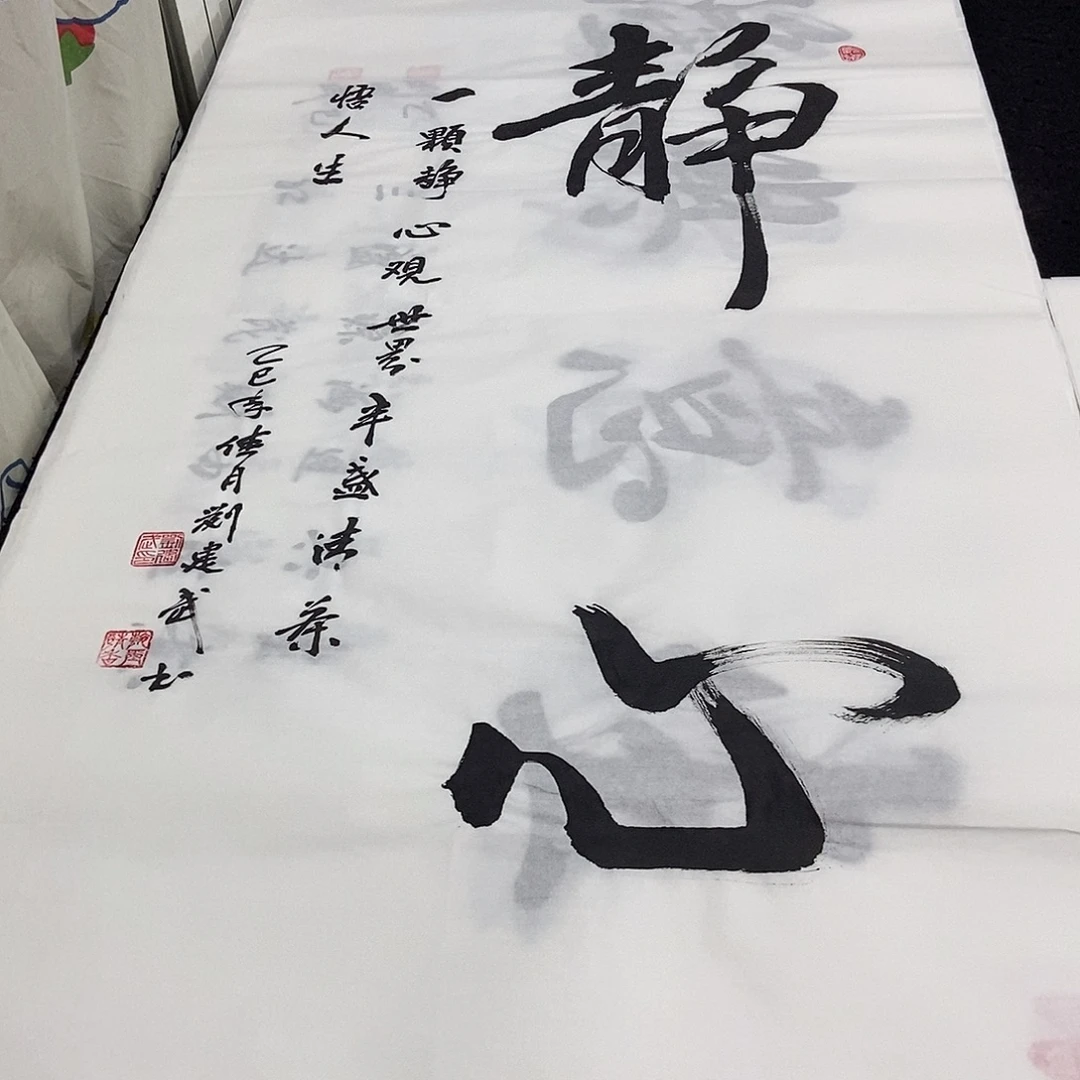 静心
一顆静心观世界半盏清茶
悟人生
乙巳年佳月劉建武书